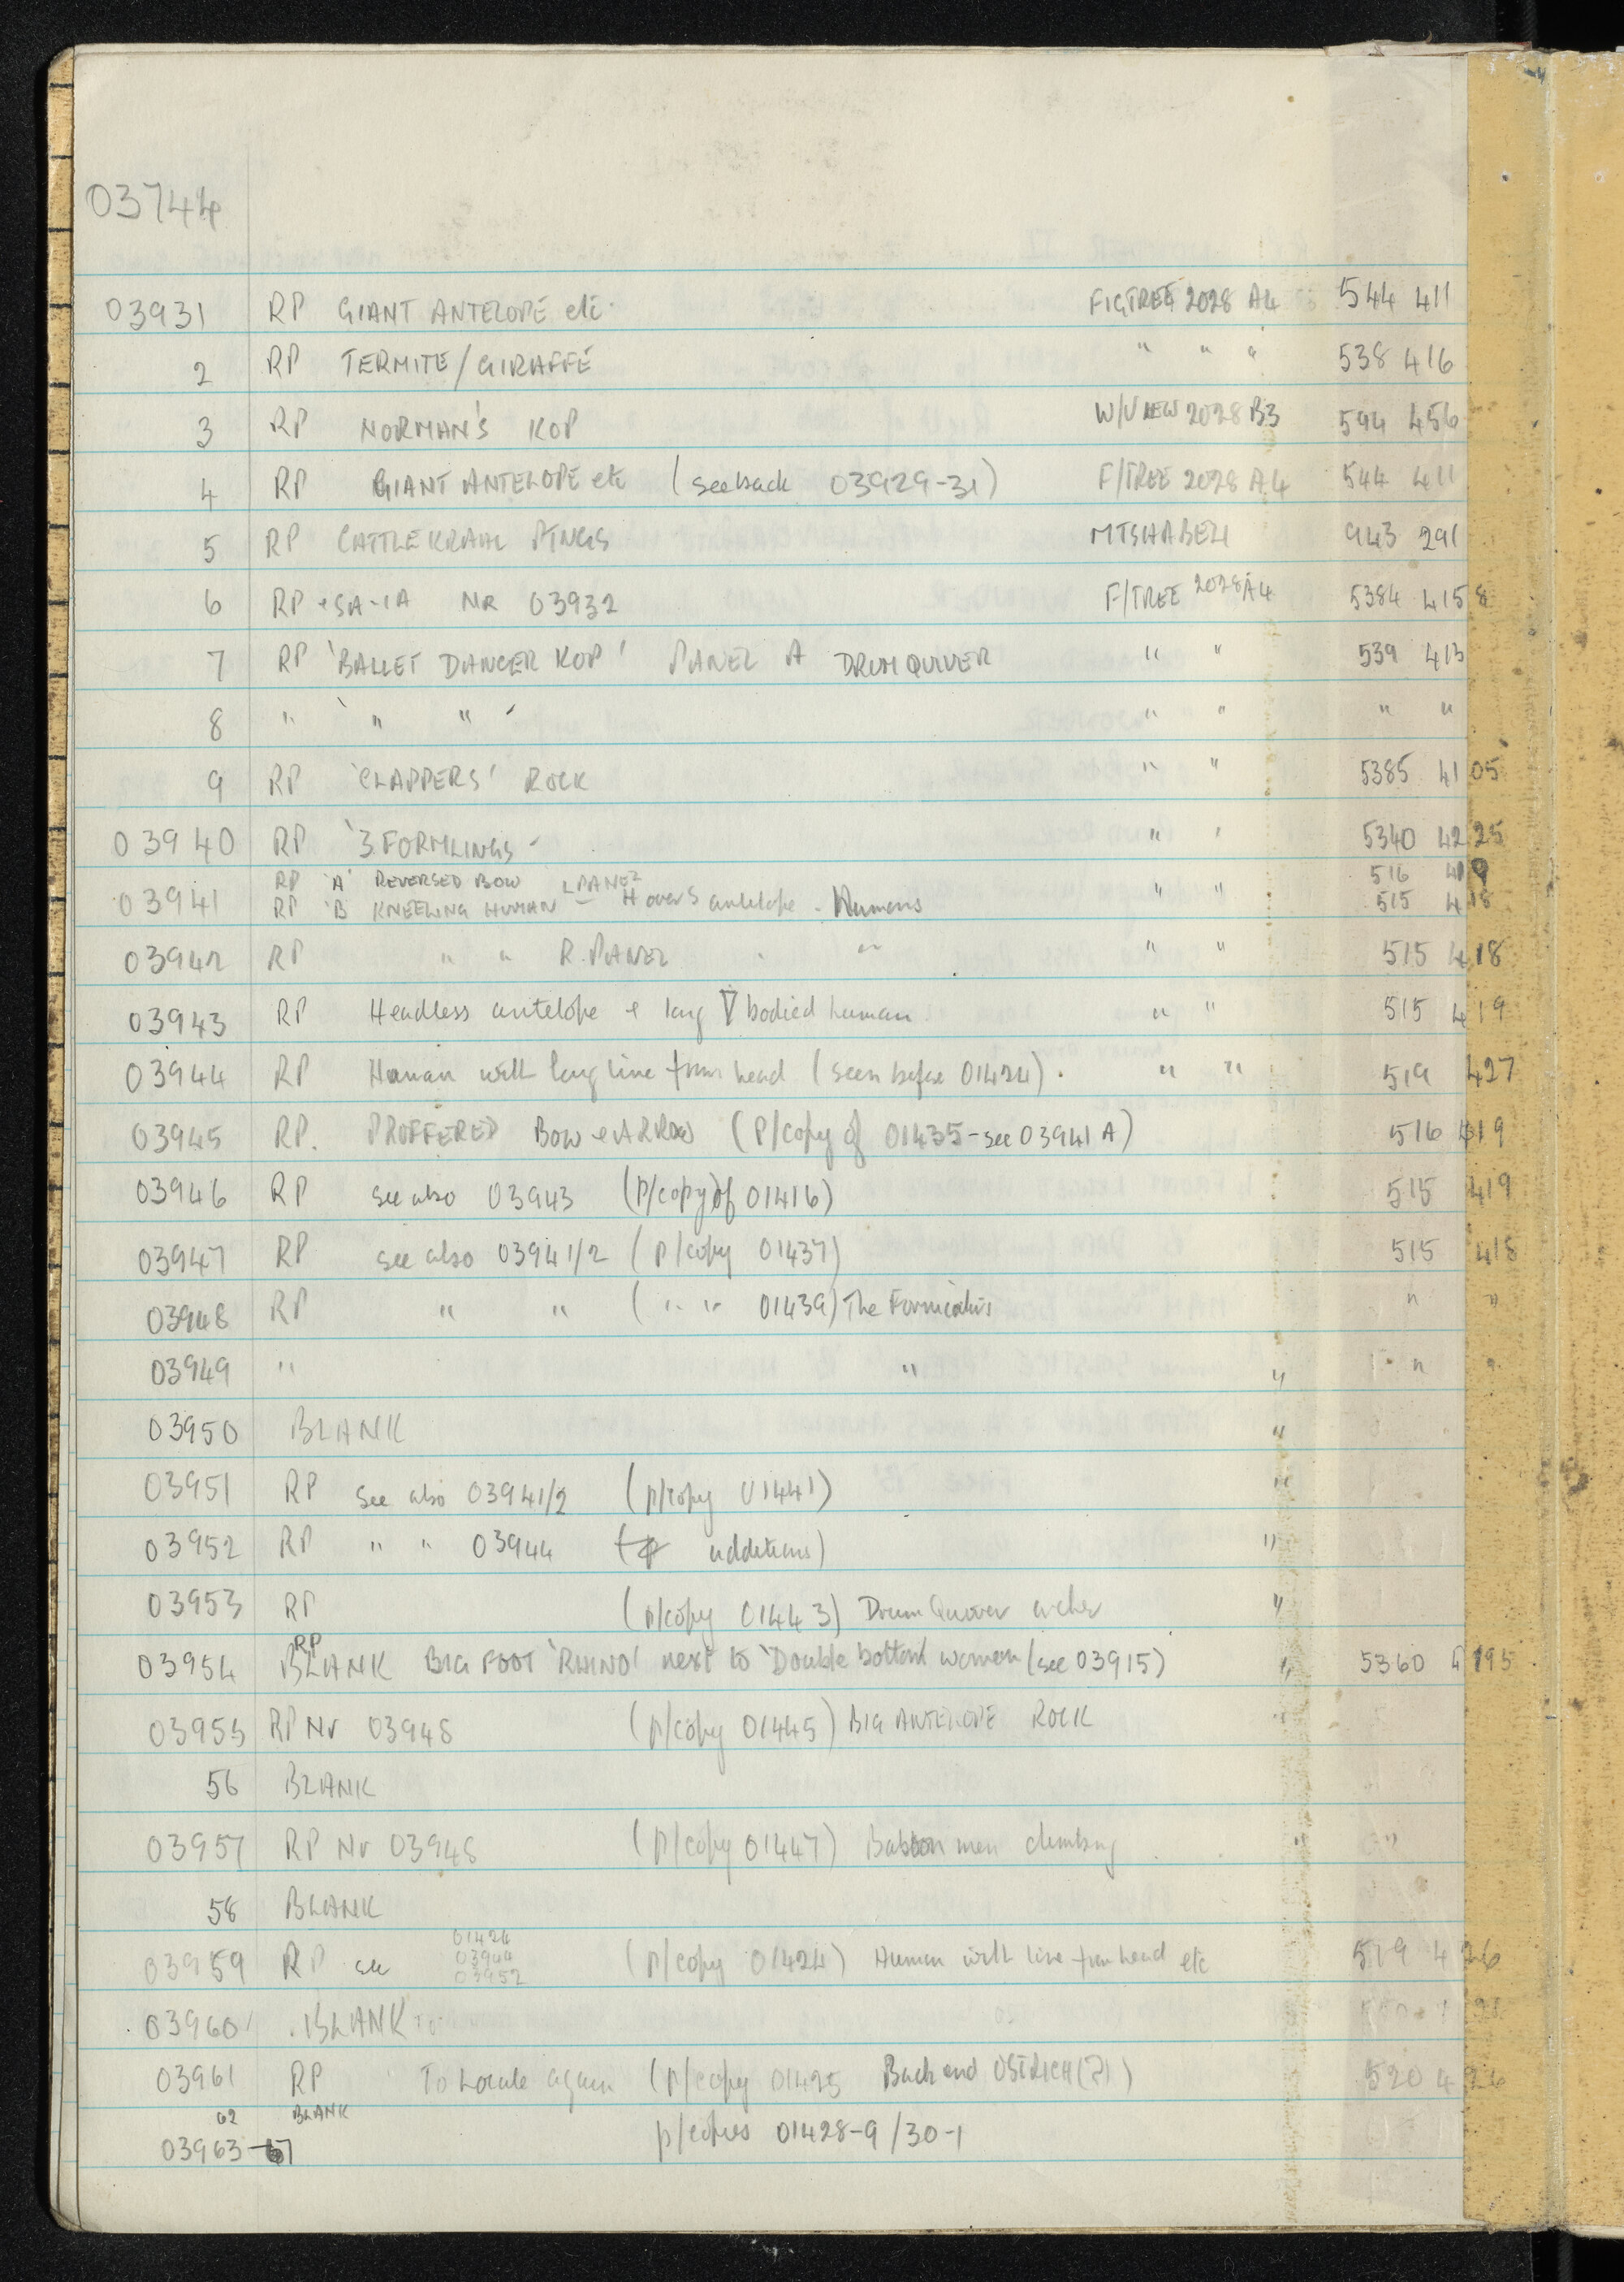 03744
03931 RP GIANT ANTELOPE etc. FIGTREE 2028 A4 544 411
2 RP TERMITE/GIRAFFE " " " 538 416
3 RP NORMAN'S KOP W/VIEW 2028 B3 594 456
4 RP GIANT ANTELOPE etc (see back 03929-31) F/TREE 2028 A4 544 411
5 RP CATTLE KRAAL PTNGS MTSHABEZI 943 291
6 RP + SA-1A NR 03932 F/TREE 2028 A4 5384 4158
7 RP 'BALLET DANCER KOP' PANEL A DRUM QUIVER " " 539 413
8 " ' " " ' " " " "
9 RP 'CLAPPERS' ROCK " " 5385 4105
03940 RP '3 FORMLINGS' " " 5340 4225
RP 'A' REVERSED BOW L PANEL 516 419
03941 RP 'B KNEELING HUMAN — H overs antelope - Humans " " 515 418
03942 RP " " R. PANEL " " " " 515 418
03943 RP Headless antelope & long ∇ bodied human " " 515 419
03944 RP Human with long line from head (seen before 01424). " " 519 427
03945 RP. PROFFERED BOW & ARROW (P/copy of 01435 - see 03941 A) 516 419
03946 RP see also 03943 (p/copy of 01416) 515 419
03947 RP see also 03941/2 (p/copy 01437) 515 418
03948 RP " " ( " " 01439) The Fornicators " "
03949 " " " " "
03950 BLANK "
03951 RP See also 03941/2 (p/copy 01441) "
03952 RP " " 03944 ( additions) "
03953 RP (p/copy 01443) Drum Quiver archer "
RP
03954 BLANK BIG FOOT 'RHINO' next to 'Double bottom' women (see 03915) " 5360 4195
03955 RP Nr 03948 (p/copy 01445) BIG ANTELOPE ROCK "
56 BLANK
03957 RP Nr 03948 (p/copy 01447) Baboon men climbing " "
58 BLANK
01424
03959 RP see 03944 (p/copy 01424) Human with line from head etc 519 426
03952
03960 . BLANK
03961 RP To Locate again (p/copy 01425 Back end OSTRICH (?)) 520 426
62 BLANK
03963-67 p/copies 01428-9/30-1